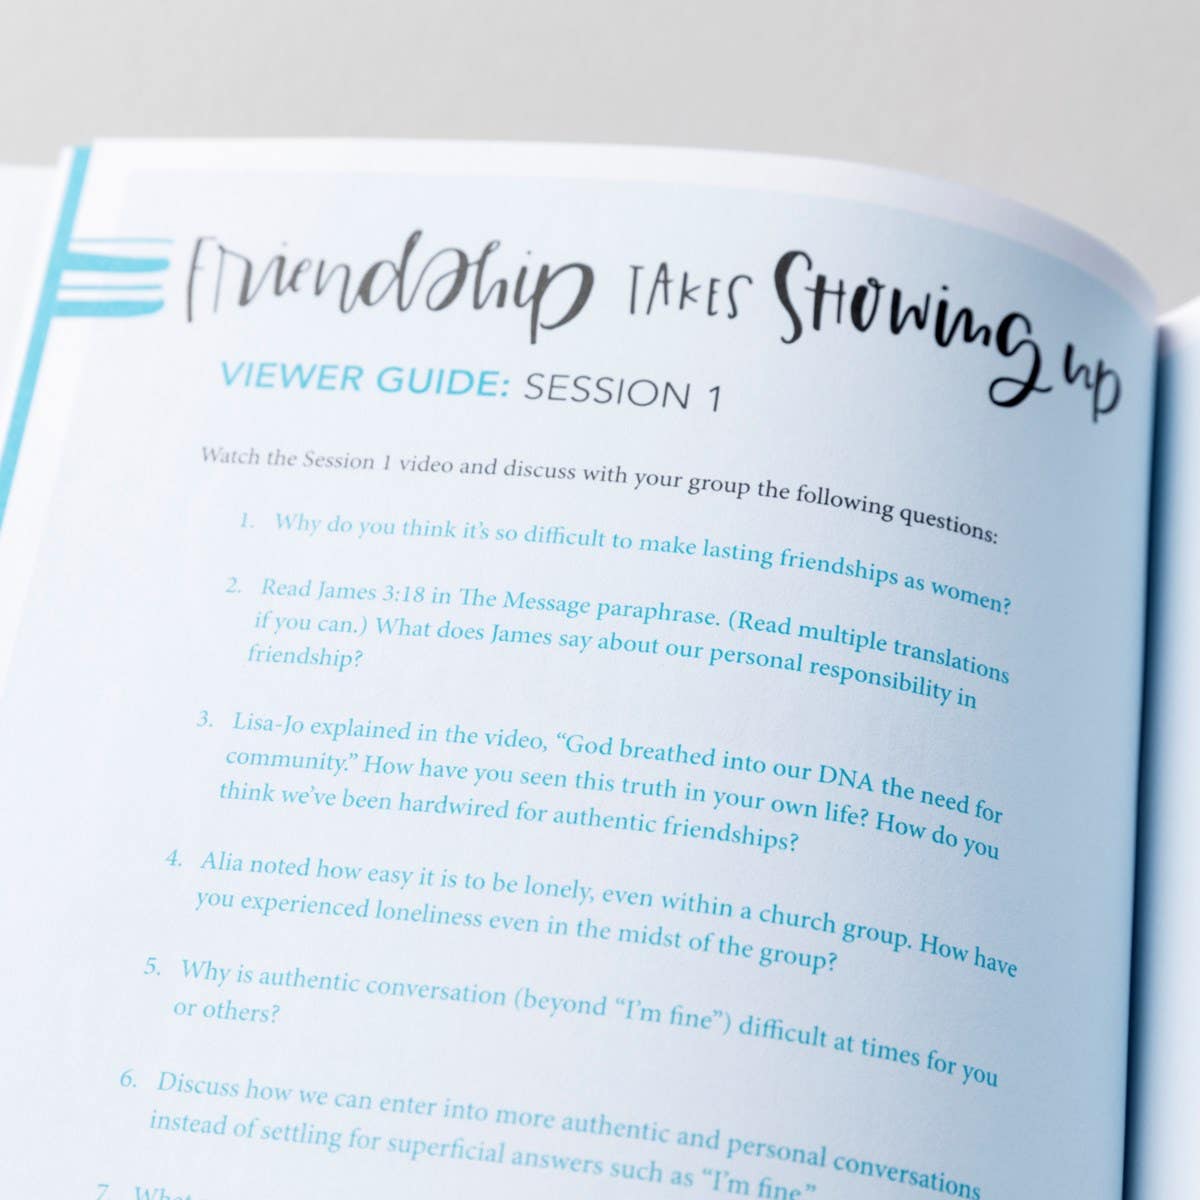 Friendship TAKES SHOwing up
VIEWER GUIDE: SESSION 1
Watch the Session 1 video and discuss with your group the following questions:
1. Why do you think it’s so difficult to make lasting friendships as women?
2. Read James 3:18 in The Message paraphrase. (Read multiple translations
if you can.) What does James say about our personal responsibility in
friendship?
3. Lisa-Jo explained in the video, “God breathed into our DNA the need for
community.” How have you seen this truth in your own life? How do you
think we’ve been hardwired for authentic friendships?
4. Alia noted how easy it is to be lonely, even within a church group. How have
you experienced loneliness even in the midst of the group?
5. Why is authentic conversation (beyond “I’m fine”) difficult at times for you
or others?
6. Discuss how we can enter into more authentic and personal conversations
instead of settling for superficial answers such as “I’m fine”
7.